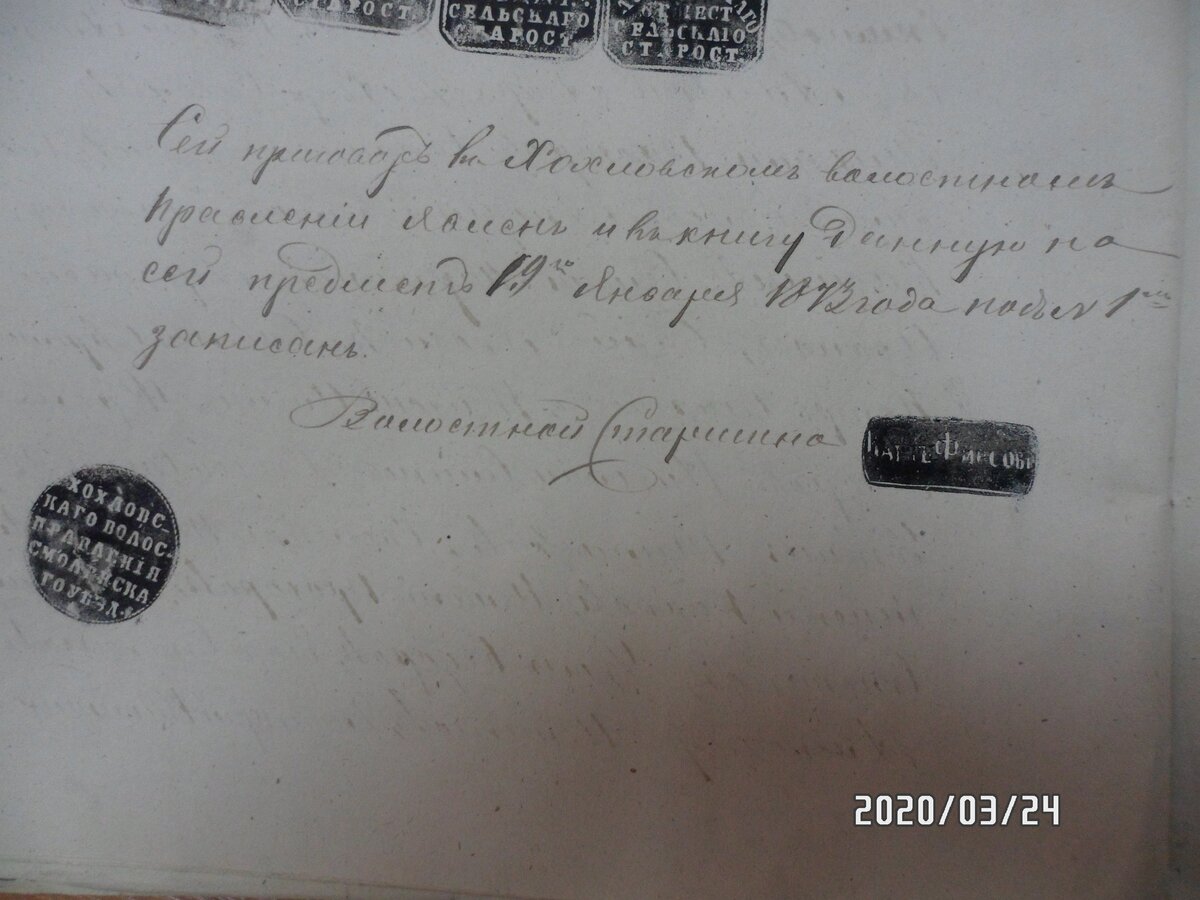 СТАРОСТ.
СЕЛЬСКАГО
СТАРОСТ.
СЕЛЬСКАГО
СТАРОСТ.
Сей приговоръ въ Хохловскомъ волостномъ
Правленіи явленъ и въ книгу данную на
сей предметъ 19го Января 1873 года подъ № 1мъ
записанъ.
Волостной Старшина
ФИРСОВЪ
ХОХЛОВС-
КАГО ВОЛОС-
ПРАВЛЕНІЯ
СМОЛЕНСКА
ГО УѢЗД.
2020/03/24